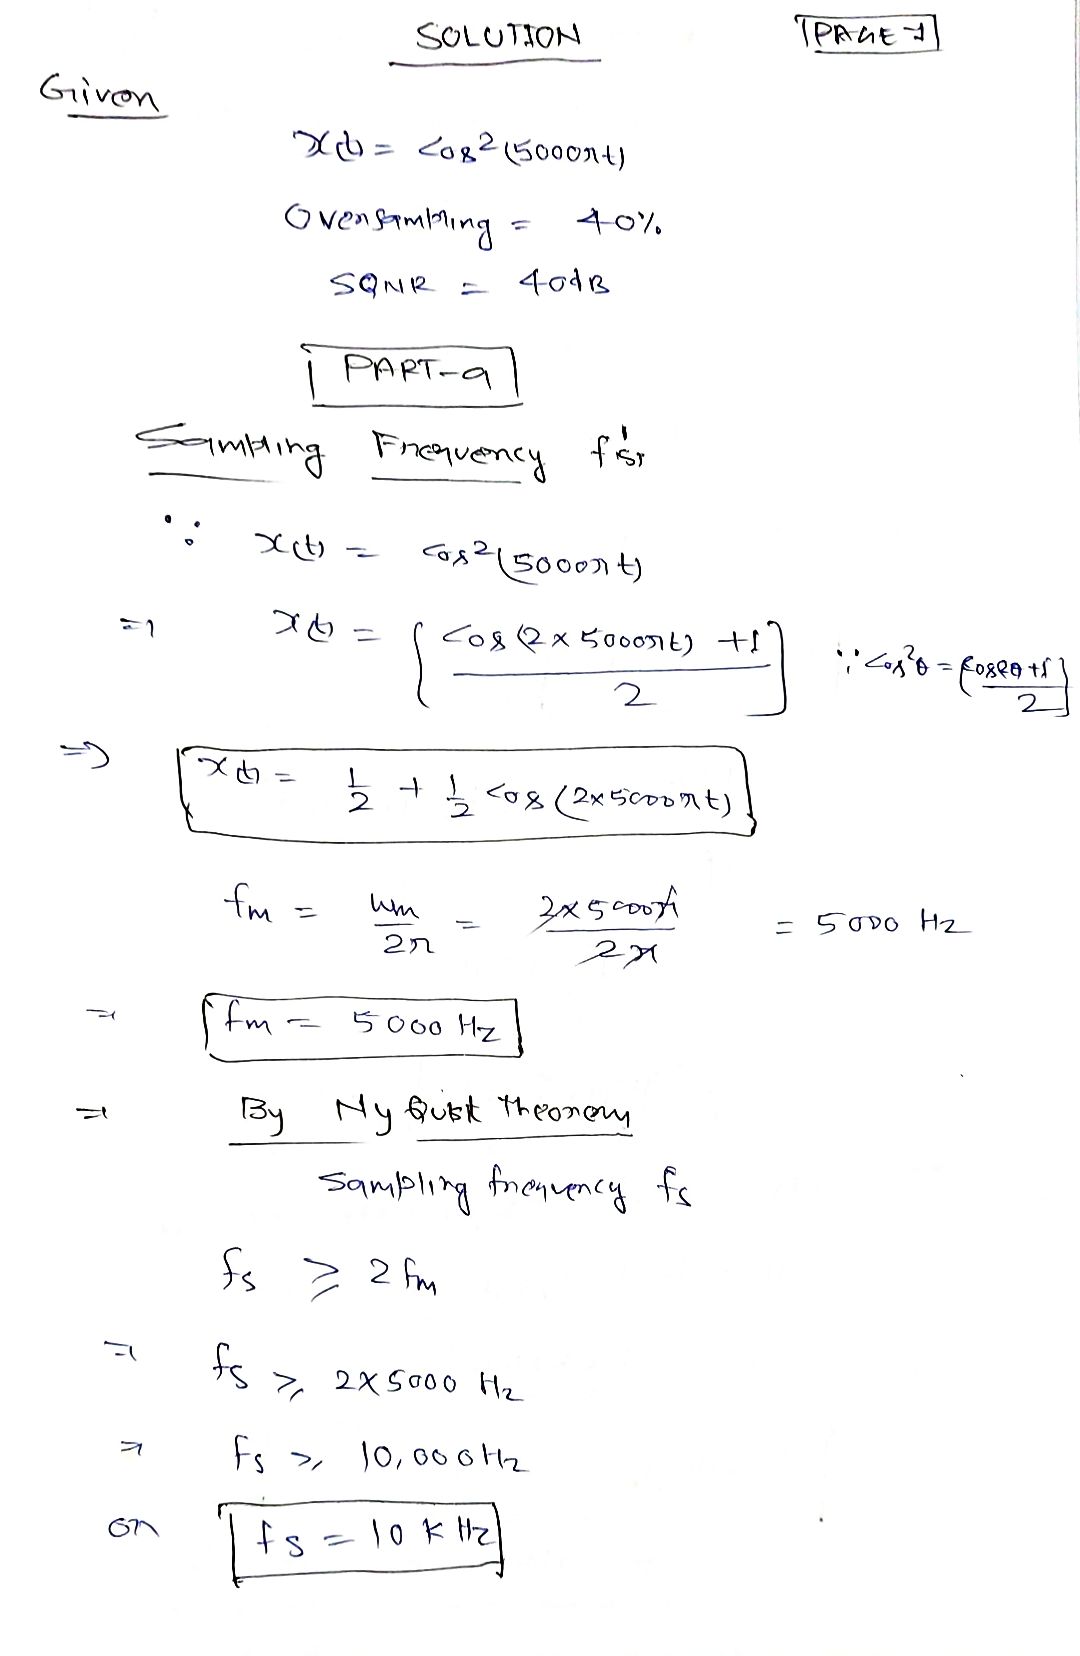 SOLUTION
PAGE-1
Given
x(t) = cos²(5000πt)
Oversampling = 40%
SQNR = 40dB
PART-a
Sampling Frequency f's:
∵ x(t) = cos²(5000πt)
⇒ x(t) = [cos(2×5000πt) +1 / 2] ∵ cos²θ = [cos2θ+1 / 2]
⇒ x(t) = 1/2 + 1/2 cos(2×5000πt)
fm = wm/2π = 2×5000π/2π = 5000 Hz
⇒ fm = 5000 Hz
⇒ By NyQuist theorem
Sampling frequency fs
fs ≥ 2fm
⇒ fs ≥ 2×5000 Hz
⇒ fs ≥ 10,000Hz
or fs = 10 KHz